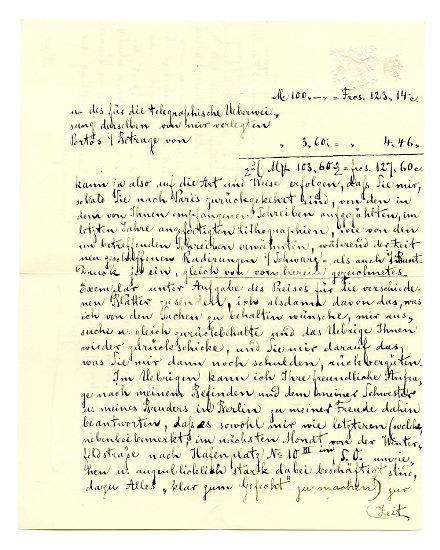 M 100.—. = Frcs. 123. 14 c.
u. des für die telegraphische Ueberwei-
sung derselben von mir verlegten
Portos i/ Betrage von " 3.60. = " 4.46.
M 103.60 = frcs. 127.60 c.
kann ja also auf die Art und Weise erfolgen, daß Sie mir,
sobald Sie nach Paris zurückgekehrt sind, von den in
dem von Ihnen empfangenen Schreiben aufgezählten, im
letzten Jahre angefertigten Lithographien, wie von den
im betreffenden Schreiben erwähnten, während der Zeit
neu geschaffenen Radirungen i/ Schwarz- als auch i/ Bunt-
Druck je ein, gleich von vornherein gezeichnetes
Exemplar unter Aufgabe des Preises für die verschiede-
nen Blätter zusenden, ich alsdann davon das, was
ich von den Sachen zu behalten wünsche, mir aus-
suche u. gleich zurückbehalte und das Uebrige Ihnen
wieder zurückschicke, und Sie mir darauf das,
was Sie mir dann noch schulden, rückvergüten.
Im Uebrigen kann ich Ihre freundliche Anfra-
ge nach meinem Befinden und dem meiner Schwester
u. meines Bruders in Berlin zu meiner Freude dahin
beantworten, daß es sowohl mir wie letzteren (welche,
nebenbei bemerkt, im nächsten Monat von der Winter-
feldstraße nach Hafenplatz No 10 III in S. O. umzie-
hen u. augenblicklich stark dabei beschäftigt sind,
dazu Alles "klar zum Gefecht" zu machen) zur
Zeit